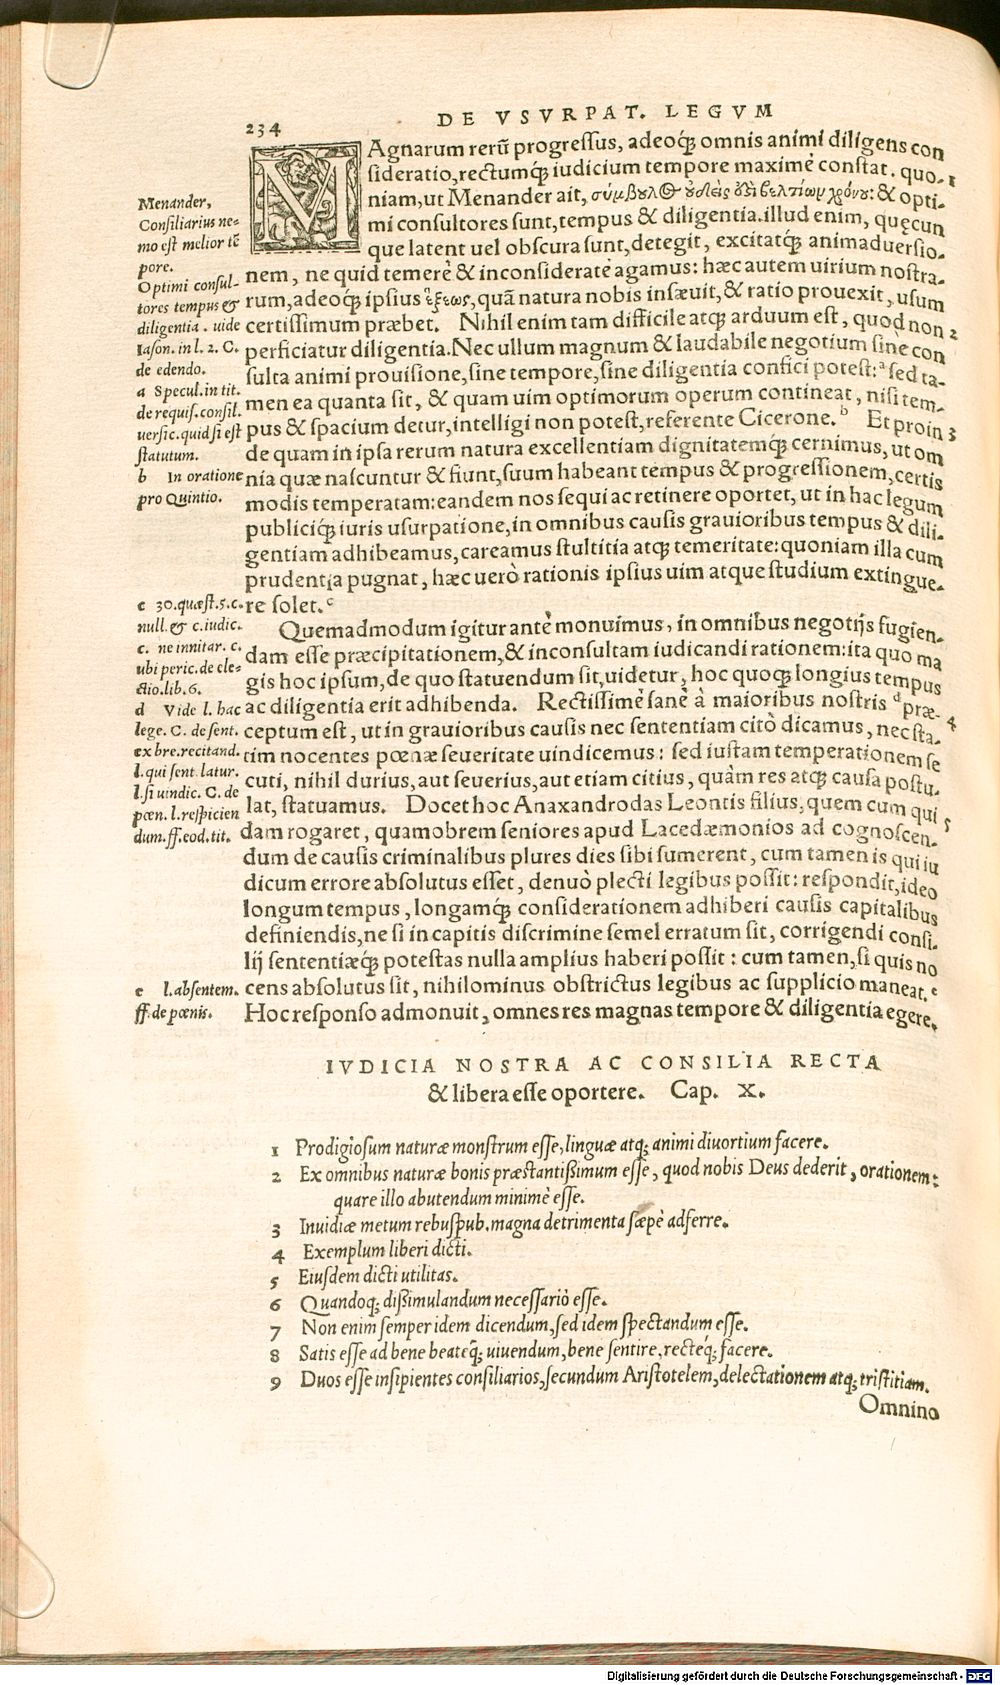 234
DE VSVRPAT. LEGVM
MAgnarum rerũ progressus, adeoq́; omnis animi diligens con
sideratio, rectumq́; iudicium tempore maximè constat. quo- 1
niam, ut Menander ait, σύμβουλος οὐδείς ἐστι βελτίων χρόνου: & opti-
mi consultores sunt, tempus & diligentia. illud enim, quęcun
que latent uel obscura sunt, detegit, excitatq́; animaduersio-
nem, ne quid temerè & inconsideratè agamus: hæc autem uirium nostra-
rum, adeoq́; ipsius ἕξεως, quã natura nobis inseuit, & ratio prouexit, usum
certissimum præbet. Nihil enim tam difficile atq; arduum est, quod non 2
perficiatur diligentia. Nec ullum magnum & laudabile negotium sine con
sulta animi prouisione, sine tempore, sine diligentia confici potest: ᵃ sed ta-
men ea quanta sit, & quam uim optimorum operum contineat, nisi tem-
pus & spacium detur, intelligi non potest, referente Cicerone. ᵇ Et proin 3
de quam in ipsa rerum natura excellentiam dignitatemq́; cernimus, ut om
nia quæ nascuntur & fiunt, suum habeant tempus & progressionem, certis
modis temperatam: eandem nos sequi ac retinere oportet, ut in hac legum
publiciq́; iuris usurpatione, in omnibus causis grauioribus tempus & dili-
gentiam adhibeamus, careamus stultitia atq; temeritate: quoniam illa cum
prudentia pugnat, hæc uerò rationis ipsius uim atque studium extingue-
re solet. ᶜ
Quemadmodum igitur antè monuimus, in omnibus negotijs fugien-
dam esse præcipitationem, & inconsultam iudicandi rationem: ita quo ma
gis hoc ipsum, de quo statuendum sit, uidetur, hoc quoq; longius tempus
ac diligentia erit adhibenda. Rectissimè sanè à maioribus nostris ᵈ præ- 4
ceptum est, ut in grauioribus causis nec sententiam citò dicamus, nec sta-
tim nocentes pœnæ seueritate uindicemus: sed iustam temperationem se
cuti, nihil durius, aut seuerius, aut etiam citius, quàm res atq; causa postu-
lat, statuamus. Docet hoc Anaxandrodas Leontis filius, quem cum qui 5
dam rogaret, quamobrem seniores apud Lacedæmonios ad cognoscen-
dum de causis criminalibus plures dies sibi sumerent, cum tamen is qui iu
dicum errore absolutus esset, denuò plecti legibus possit: respondit, ideo
longum tempus, longamq́; considerationem adhiberi causis capitalibus
definiendis, ne si in capitis discrimine semel erratum sit, corrigendi consi-
lij sententiæq́; potestas nulla amplius haberi possit: cum tamen, si quis no
cens absolutus sit, nihilominus obstrictus legibus ac supplicio maneat. ᵉ
Hoc responso admonuit, omnes res magnas tempore & diligentia egere.
Menander,
Consiliarius ne-
mo est melior tẽ
pore.
Optimi consul-
tores tempus &
diligentia. uide
Iason. in l. 2. C.
de edendo.
a Specul. in tit.
de requis. consil.
uersic. quid si est
statutum.
b In oratione
pro Quintio.
c 30. quæst. 5. c.
null. & c. iudic.
c. ne innitar. c.
ubi peric. de ele-
ctio. lib. 6.
d Vide l. hac
lege. C. de sent.
ex bre. recitand.
l. qui sent. latur.
l. si uindic. C. de
pœn. l. respicien
dum. ff. eod. tit.
e l. absentem.
ff. de pœnis.
IVDICIA NOSTRA AC CONSILIA RECTA
& libera esse oportere. Cap. X.
1 Prodigiosum naturæ monstrum esse, linguæ atq; animi diuortium facere.
2 Ex omnibus naturæ bonis præstantißimum esse, quod nobis Deus dederit, orationem:
quare illo abutendum minimè esse.
3 Inuidiæ metum rebuspub. magna detrimenta sæpè adferre.
4 Exemplum liberi dicti.
5 Eiusdem dicti utilitas.
6 Quandoq; dißimulandum necessariò esse.
7 Non enim semper idem dicendum, sed idem spectandum esse.
8 Satis esse ad bene beateq́; uiuendum, bene sentire, recteq́; facere.
9 Duos esse insipientes consiliarios, secundum Aristotelem, delectationem atq; tristitiam.
Omnino
Digitalisierung gefördert durch die Deutsche Forschungsgemeinschaft - DFG